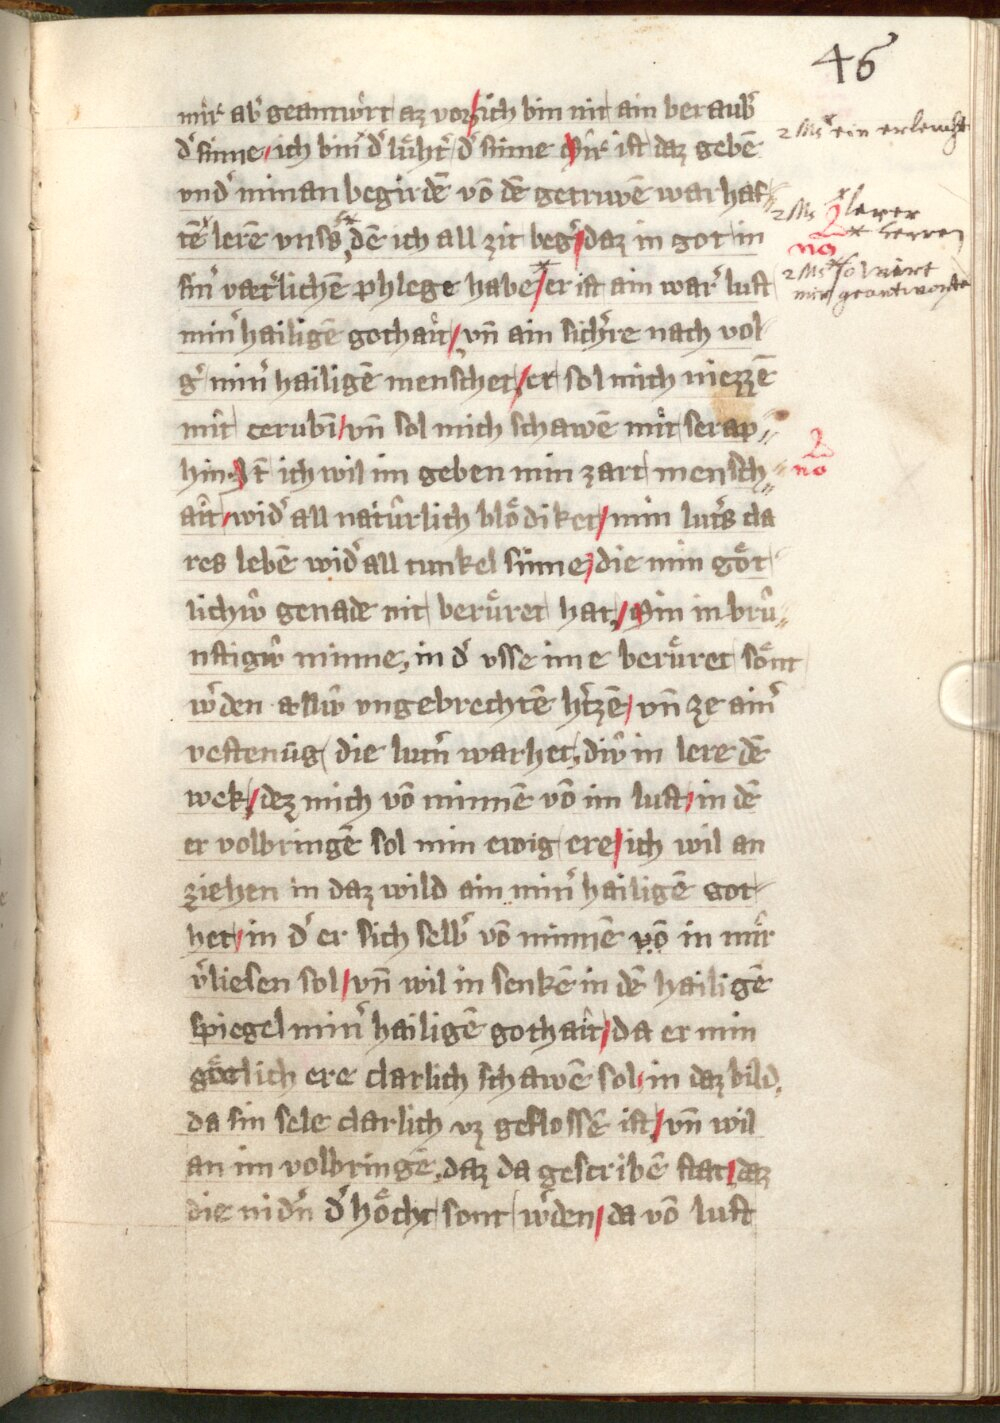 46
mir ab͛ geantw̾rt az vor / ich bin nit ain beraub͛
d͛ sinne / ich bin d͛ lu̍ht͛ d͛ sinne Mir ist daz gebē
2 Ms ein erleucht
vnd͛ minan begirdē vō dē getruwē warhaf⸗
tē lerē vnss͛ dē ich all zit beg͛ / daz in got in
2 Ms lerer
herren
no
sin͛ væt͛lichē phlege habe / er ist ain war͛ lust
2 Ms so wirt
mir geantworte
min͛ hailigē gothait / vn̄ ain sich͛re nach vol⸗
g͛ min͛ hailigē menschet / er sol mich niezzē
mit cerubī / vn̄ sol mich schawē mit serap⸗
hin ich wil im geben min zart mensch⸗
no
ait / wid͛ all natu̍rlich blo̍diket / min lut͛s cla
res lebē wid͛ all tunkel sinne / die min go̍t⸗
lichiv̂ genade nit beru̍ret hat / Min in bru̍⸗
nstigiv̂ minne, in d͛ vsse ime beru̍ret so̍nt
w͛den alliv̂ vngebrechtē h͛tzē / vn̄ ze ain͛
vestenūg die lut͛n warhet, div̂ in lere dē
wek / dez mich vō minnē vō im lust / in dē
er volbringē sol min ewig ere / ich wil an
ziehen in daz wild ain min͛ hailigē got⸗
het / in d͛ er sich selb͛ vō minnē vō in mir
v͛liesen sol / vn̄ wil in senkē in dē hailigē
spiegel min͛ hailigē gothait / da er min
go̍tlich ere clarlich schawē sol / in daz bild,
da sin sele clarlich vz geflossē ist / vn̄ wil
an im volbringē, daz da gescribē stat / daz
die nid͛n d͛ ho̍cht sont w͛den / da vō lust